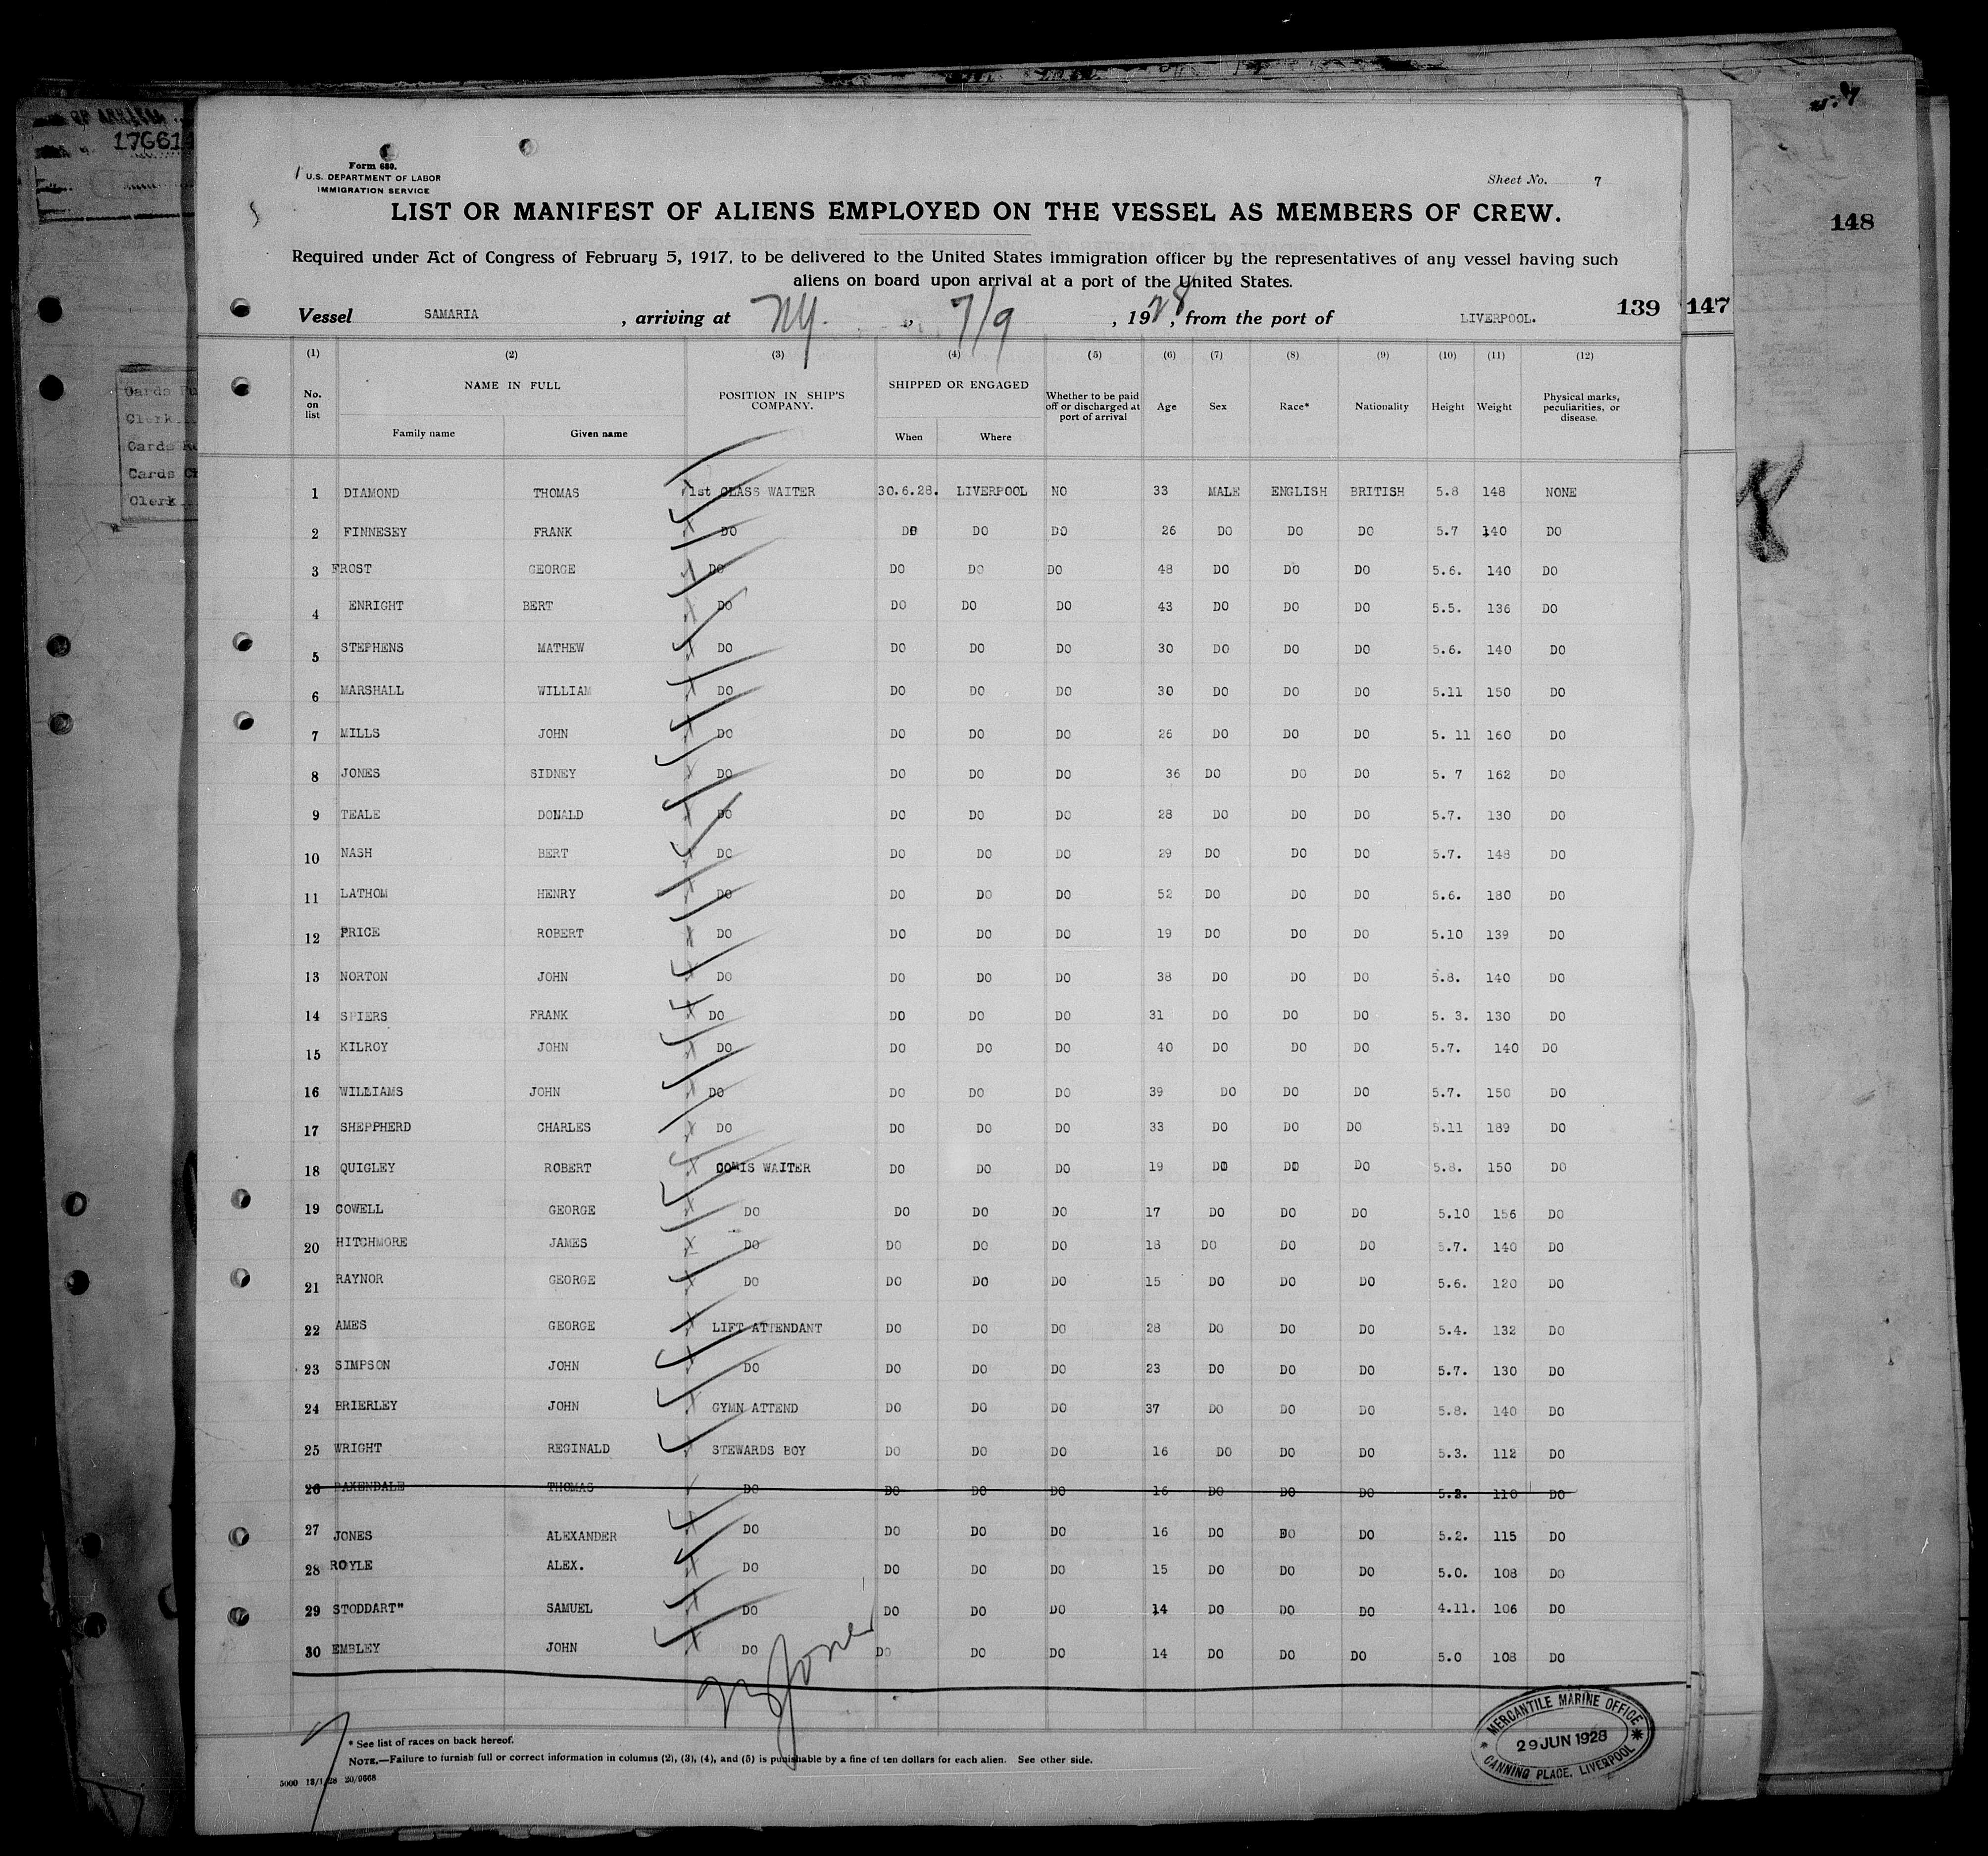 OF ARRIVAL
17661
148
Cards
Clerk
Cards
Cards
Clerk
Form 680.
U.S. DEPARTMENT OF LABOR
IMMIGRATION SERVICE
Sheet No. 7
LIST OR MANIFEST OF ALIENS EMPLOYED ON THE VESSEL AS MEMBERS OF CREW.
Required under Act of Congress of February 5, 1917, to be delivered to the United States immigration officer by the representatives of any vessel having such
aliens on board upon arrival at a port of the United States.
Vessel SAMARIA , arriving at NY. , 7/9 , 1928, from the port of LIVERPOOL. 139 147
(1) (2) (3) (4) (5) (6) (7) (8) (9) (10) (11) (12)
No. on list NAME IN FULL Family name Given name POSITION IN SHIP'S COMPANY. SHIPPED OR ENGAGED When Where Whether to be paid off or discharged at port of arrival Age Sex Race* Nationality Height Weight Physical marks, peculiarities, or disease.
1 DIAMOND THOMAS 1st CLASS WAITER 30.6.28. LIVERPOOL NO 33 MALE ENGLISH BRITISH 5.8 148 NONE
2 FINNESEY FRANK DO DO DO DO 26 DO DO DO 5.7 140 DO
3 FROST GEORGE DO DO DO DO 48 DO DO DO 5.6. 140 DO
4 ENRIGHT BERT DO DO DO DO 43 DO DO DO 5.5. 136 DO
5 STEPHENS MATHEW DO DO DO DO 30 DO DO DO 5.6. 140 DO
6 MARSHALL WILLIAM DO DO DO DO 30 DO DO DO 5.11 150 DO
7 MILLS JOHN DO DO DO DO 26 DO DO DO 5. 11 160 DO
8 JONES SIDNEY DO DO DO DO 36 DO DO DO 5. 7 162 DO
9 TEALE DONALD DO DO DO DO 28 DO DO DO 5.7. 130 DO
10 NASH BERT DO DO DO DO 29 DO DO DO 5.7. 148 DO
11 LATHOM HENRY DO DO DO DO 52 DO DO DO 5.6. 180 DO
12 PRICE ROBERT DO DO DO DO 19 DO DO DO 5.10 139 DO
13 NORTON JOHN DO DO DO DO 38 DO DO DO 5.8. 140 DO
14 SPIERS FRANK DO DO DO DO 31 DO DO DO 5. 3. 130 DO
15 KILROY JOHN DO DO DO DO 40 DO DO DO 5.7. 140 DO
16 WILLIAMS JOHN DO DO DO DO 39 DO DO DO 5.7. 150 DO
17 SHEPPHERD CHARLES DO DO DO DO 33 DO DO DO 5.11 189 DO
18 QUIGLEY ROBERT COMIS WAITER DO DO DO 19 DO DO DO 5.8. 150 DO
19 COWELL GEORGE DO DO DO DO 17 DO DO DO 5.10 156 DO
20 HITCHMORE JAMES DO DO DO DO 18 DO DO DO 5.7. 140 DO
21 RAYNOR GEORGE DO DO DO DO 15 DO DO DO 5.6. 120 DO
22 AMES GEORGE LIFT ATTENDANT DO DO DO 28 DO DO DO 5.4. 132 DO
23 SIMPSON JOHN DO DO DO DO 23 DO DO DO 5.7. 130 DO
24 BRIERLEY JOHN GYMN ATTEND DO DO DO 37 DO DO DO 5.8. 140 DO
25 WRIGHT REGINALD STEWARDS BOY DO DO DO 16 DO DO DO 5.3. 112 DO
26 BAXENDALE THOMAS DO DO DO DO 16 DO DO DO 5.2. 110 DO
27 JONES ALEXANDER DO DO DO DO 16 DO DO DO 5.2. 115 DO
28 ROYLE ALEX. DO DO DO DO 15 DO DO DO 5.0. 108 DO
29 STODDART" SAMUEL DO DO DO DO 14 DO DO DO 4.11. 106 DO
30 EMBLEY JOHN DO DO DO DO 14 DO DO DO 5.0 108 DO
Jones
MERCANTILE MARINE OFFICE
29 JUN 1928
CANNING PLACE. LIVERPOOL
* See list of races on back hereof.
NOTE.—Failure to furnish full or correct information in columns (2), (3), (4), and (5) is punishable by a fine of ten dollars for each alien. See other side.
5000 13/1/28 20/9668